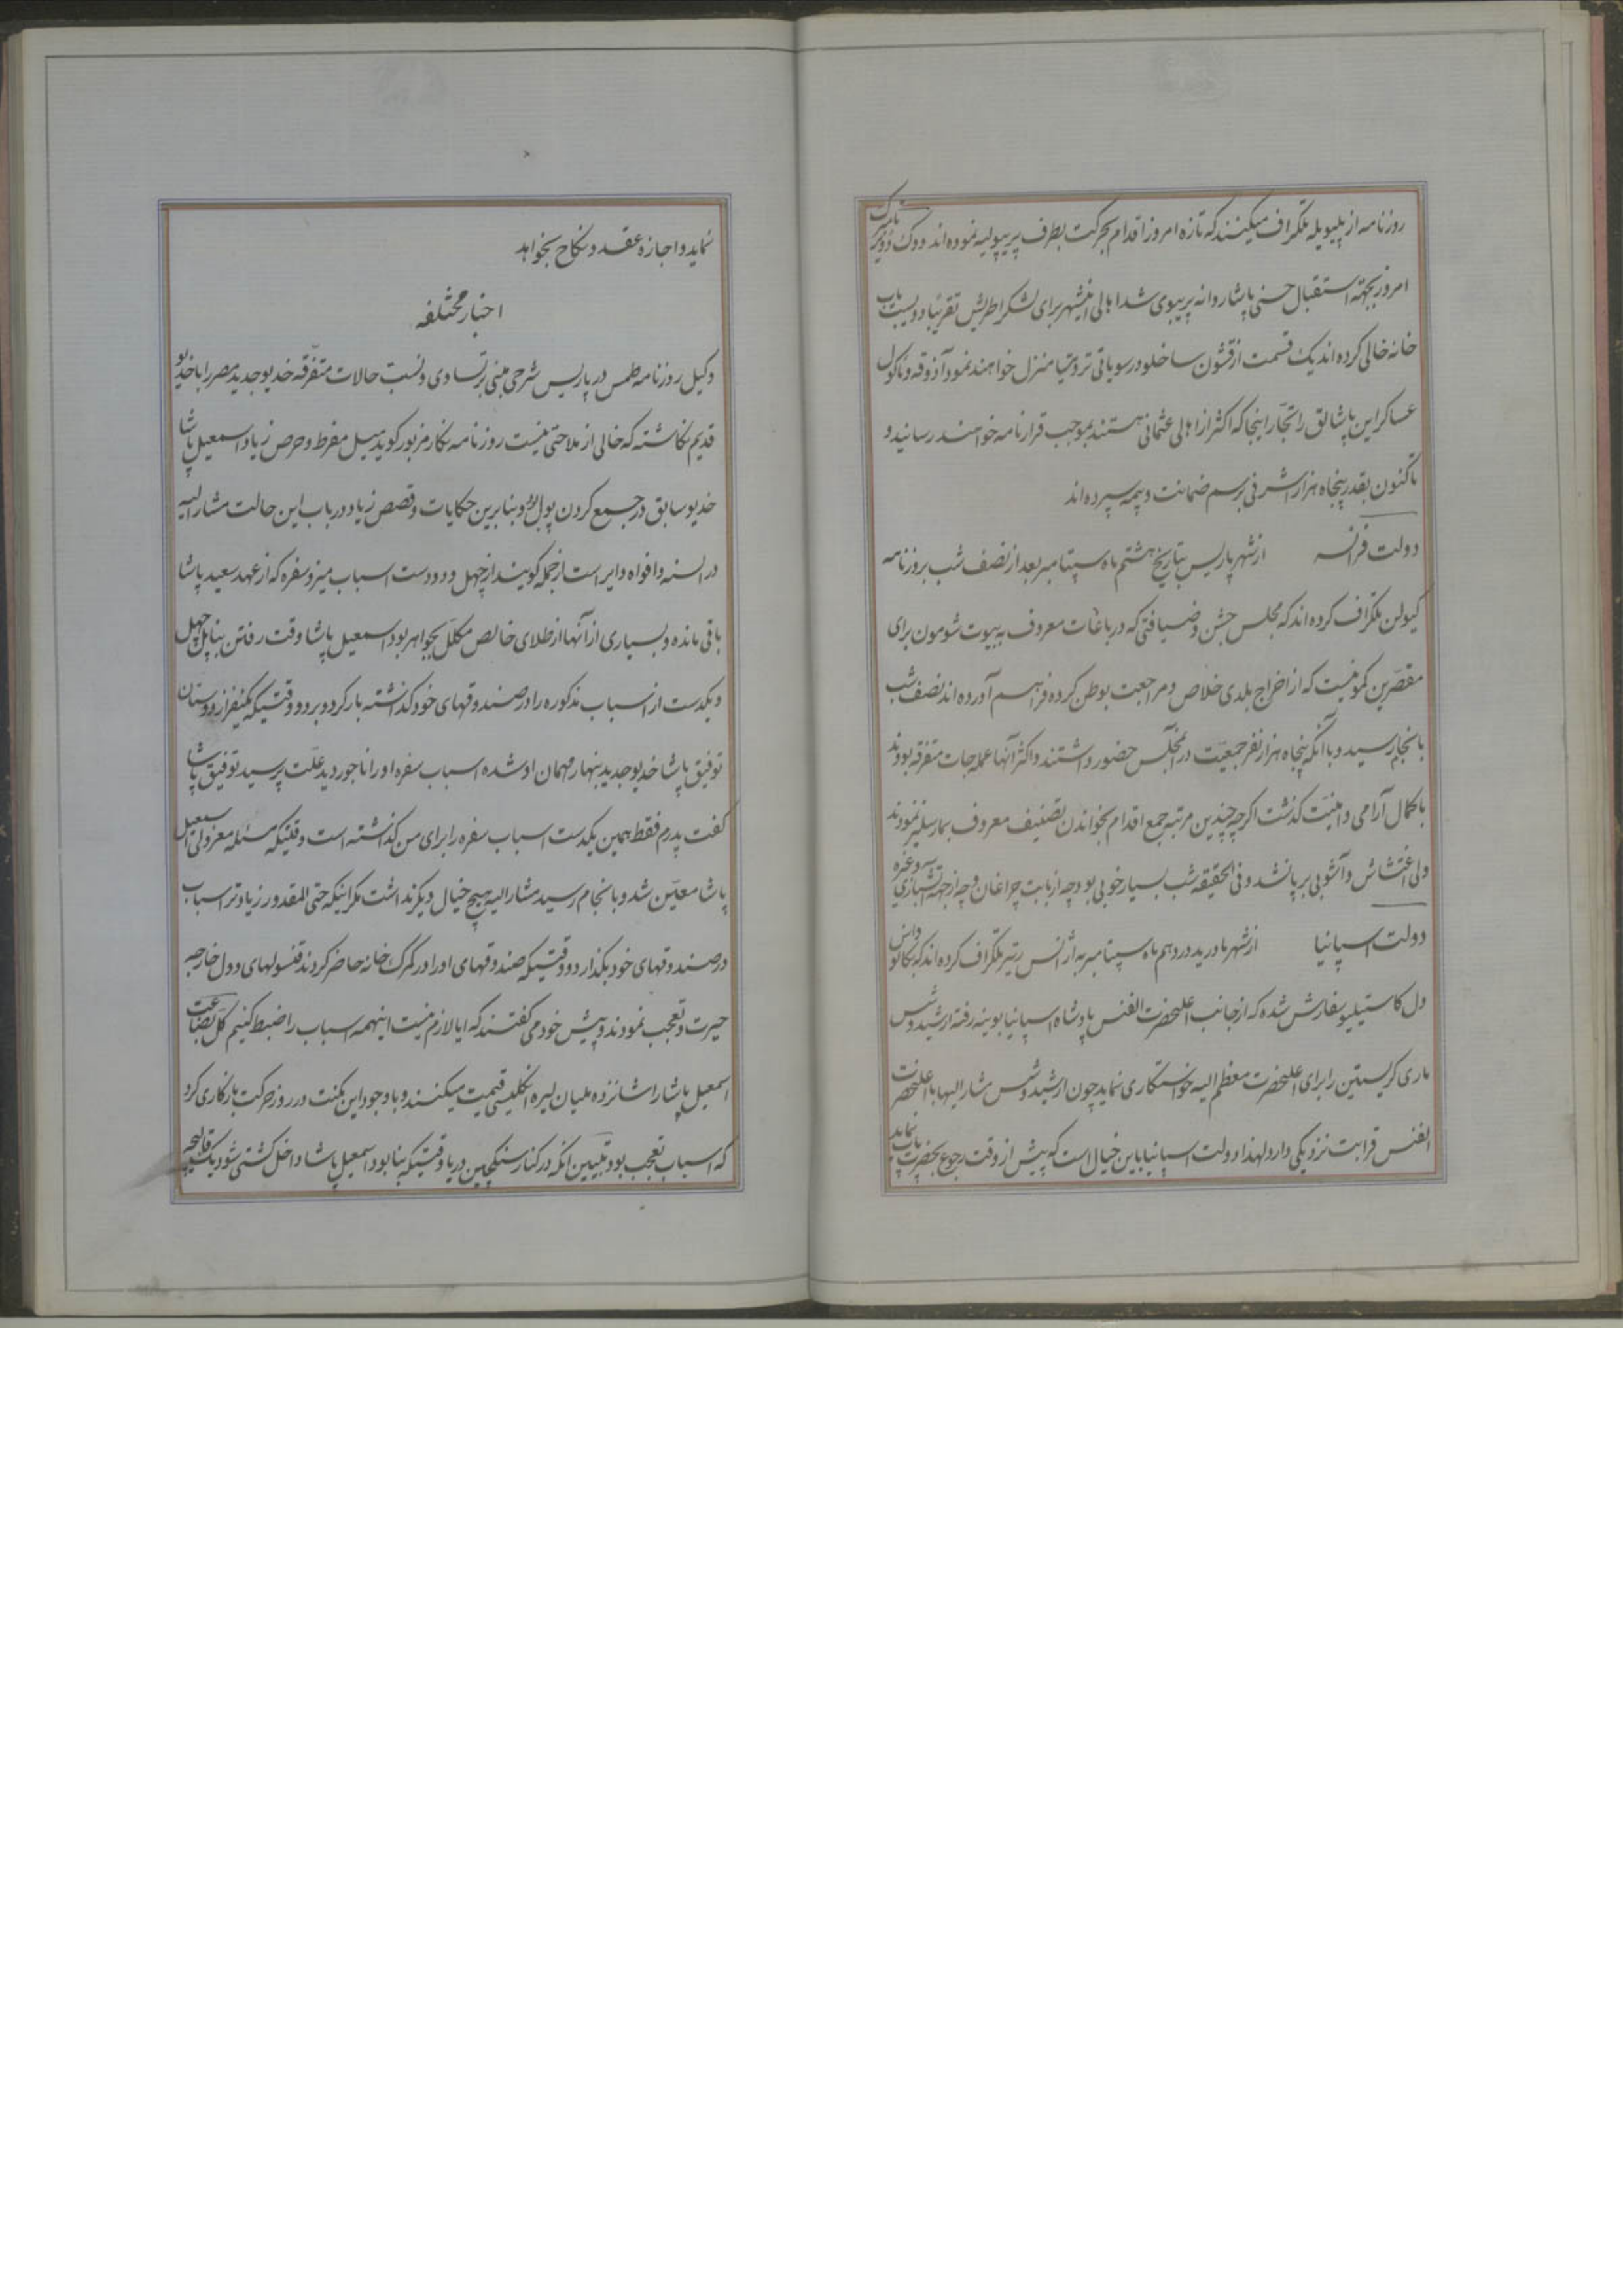 روزنامه از پلیویله تلگراف میکنند که تازه امروز اقدام بحرکت بطرف پریپولیه نموده‌اند دوک
امروز بجهة استقبال حسنی پاشا روانه پریبوی شد اهالی اینشهر برای لشکر اطریش تقریبا دویست باب
خانه خالی کرده‌اند یک قسمت از قشون ساخلو در سرویاقی منزل خواهند نمود آذوقه و ماکول
عساکر این پاشالق را تجار اینجا که اکثر از اهالی عثمانی هستند بموجب قرارنامه خواهند رسانید و
تاکنون بقدر پنجاه هزار اشرفی برسم ضمانت و بیمه سپرده‌اند
دولت فرانسه از شهر پاریس بتاریخ هشتم ماه سپتامبر بعد از نصف شب بروزنامه
کیولن تلگراف کرده‌اند که مجلس جشن و ضیافتی که در باغات معروف به بیوت شومون برای
مقصرین کمونیست که از اخراج بلدی خلاص و مراجعت بوطن کرده فراهم آورده‌اند نصف شب
بانجام رسید و با آنکه پنجاه هزار نفر جمعیت در آنمجلس حضور داشتند و اکثر آنها عمله جات متفرقه بودند
با کمال آرامی و امنیت گذشت اگرچه چندین مرتبه جمع اقدام بخواندن تصنیف معروف بمارسلیز نمودند
ولی اغتشاش و آشوبی برپا نشد و فی الحقیقه شب بسیار خوبی بود چه از بابت چراغان و چه از جهة آتشبازی و غیره
دولت اسپانیا از شهر مادرید در دهم ماه سپتامبر به اژانس ریتر تلگراف کرده‌اند که
دل کاستیلیو سفارش شده که از جانب اعلیحضرت الفنس پادشاه اسپانیا بوینه رفته ارشیدوشس
ماری کریستین را برای اعلیحضرت معظم الیه خواستگاری نماید چون ارشیدوشس مشار الیها با اعلیحضرت
الفنس قرابت نزدیکی دارد لهذا دولت اسپانیا باین خیال است که پیش از وقت رجوع بحضرت پاپ نماید
نماید و اجازه عقد و نکاح بخواهد
اخبار مختلفه
وکیل روزنامه طمس در پاریس شرحی مبنی بر تساوی و نسبت حالات متفرقه خدیو جدید مصر را با خدیو
قدیم نگاشته که خالی از ملاحتی نیست روزنامه نگار مزبور گوید میل مفرط و حرص زیاد اسمعیل پاشا
خدیو سابق در جمع کردن پول بود بنابرین حکایات و قصص زیاد در باب این حالت مشار الیه
در السنه و افواه دایر است از جمله گویند از چهل و دو دست اسباب میز و سفره که از عهد سعید پاشا
باقی مانده و بسیاری از آنها از طلای خالص مکلل بجواهر بود اسمعیل پاشا وقت رفتن بناپل چهل
و یکدست از اسباب مذکوره را در صندوقهای خود گذاشته بار کرد و برد و وقتیکه یکنفر از دوستان
توفیق پاشا خدیو جدید بنهار مهمان او شده اسباب سفره او را ناجور دید علت پرسید توفیق پاشا
گفت پدرم فقط همین یکدست اسباب سفره را برای من گذاشته است وقتیکه مسئله معزولی اسمعیل
پاشا معین شد و بانجام رسید مشار الیه هیچ خیال دیگر نداشت مگر اینکه حتی المقدور زیادتر اسباب
در صندوقهای خود بگذارد و وقتیکه صندوقهای او را در گمرک خانه حاضر کردند قنسولهای دول خارجه
حیرت و تعجب نمودند و پیش خود می گفتند که ایا لازم نیست اینهمه اسباب را ضبط کنیم کل بضاعت
اسمعیل پاشا را شانزده ملیان لیره انگلیسی قیمت میکنند و با وجود این مکنت در روز حرکت باز کاری کرد
که اسباب تعجب بود تبیین آنکه در کنار سنگچین دریا وقتیکه بنا بود اسمعیل پاشا داخل کشتی شود یک